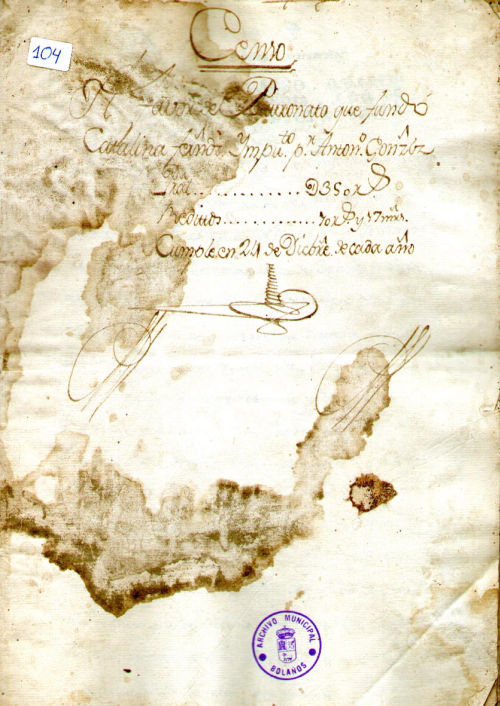 104
Censo
A favor de el Patronato que fundó
Catalina fern.z Ympu.to p.r Anton.o Gonz.z
Pral............. D350 r.s
Réditos............. 10 r.s y 17 mrs.
Cumple en 24 de Dicbre. de cada año
ARCHIVO MUNICIPAL
BOLAÑOS